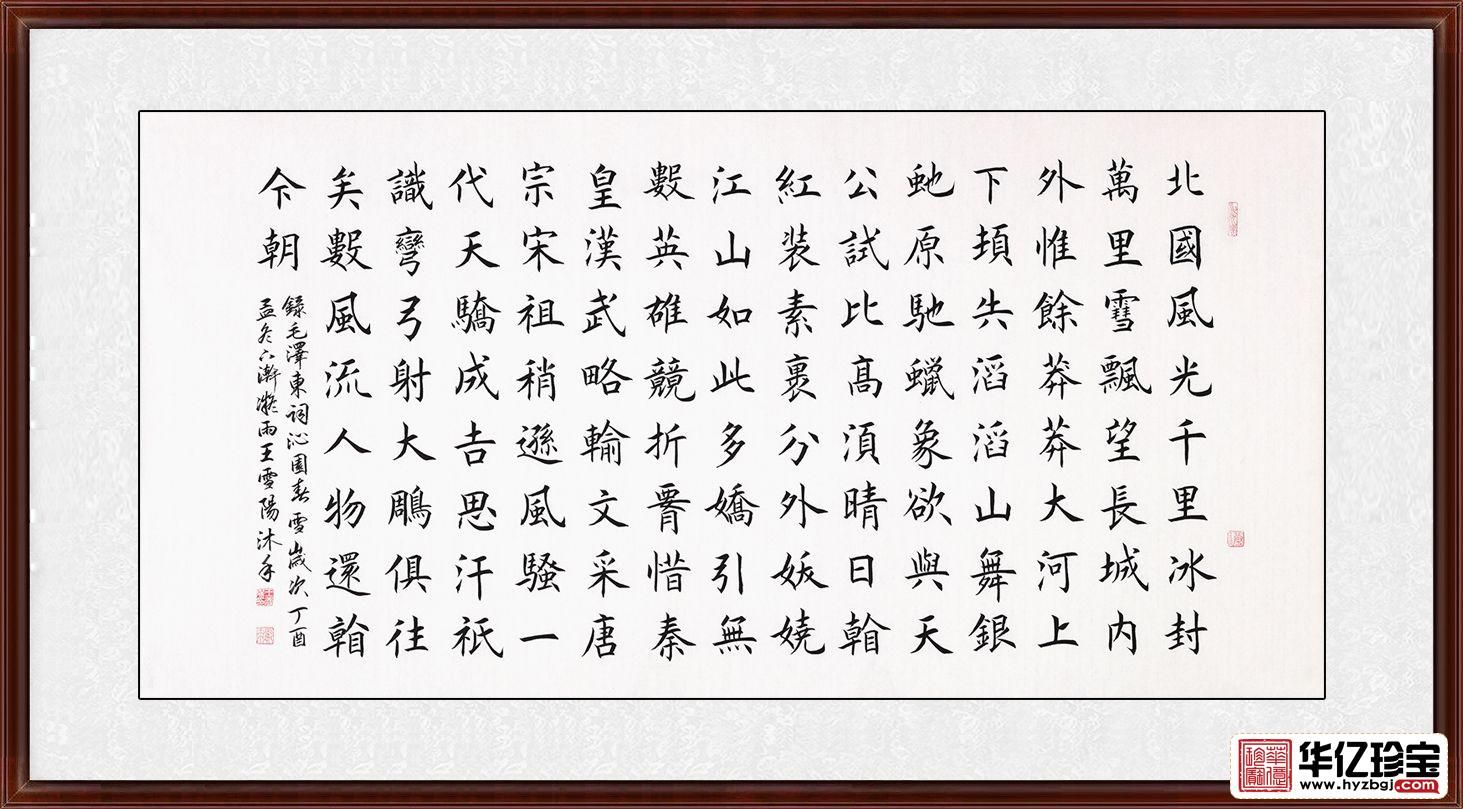 北國風光千里冰封
萬里雪飄望長城內
外惟餘莽莽大河上
下頓失滔滔山舞銀
虵原馳蠟象欲與天
公試比高須晴日看
紅裝素裹分外妖嬈
江山如此多嬌引無
數英雄競折腰惜秦
皇漢武略輸文采唐
宗宋祖稍遜風騷一
代天驕成吉思汗祇
識彎弓射大鵰俱往
矣數風流人物還看
今朝
錄毛澤東詞沁園春雪歲次丁酉
孟冬 漸凝雨王雪陽沐手
华亿珍宝
www.hyzbgj.com